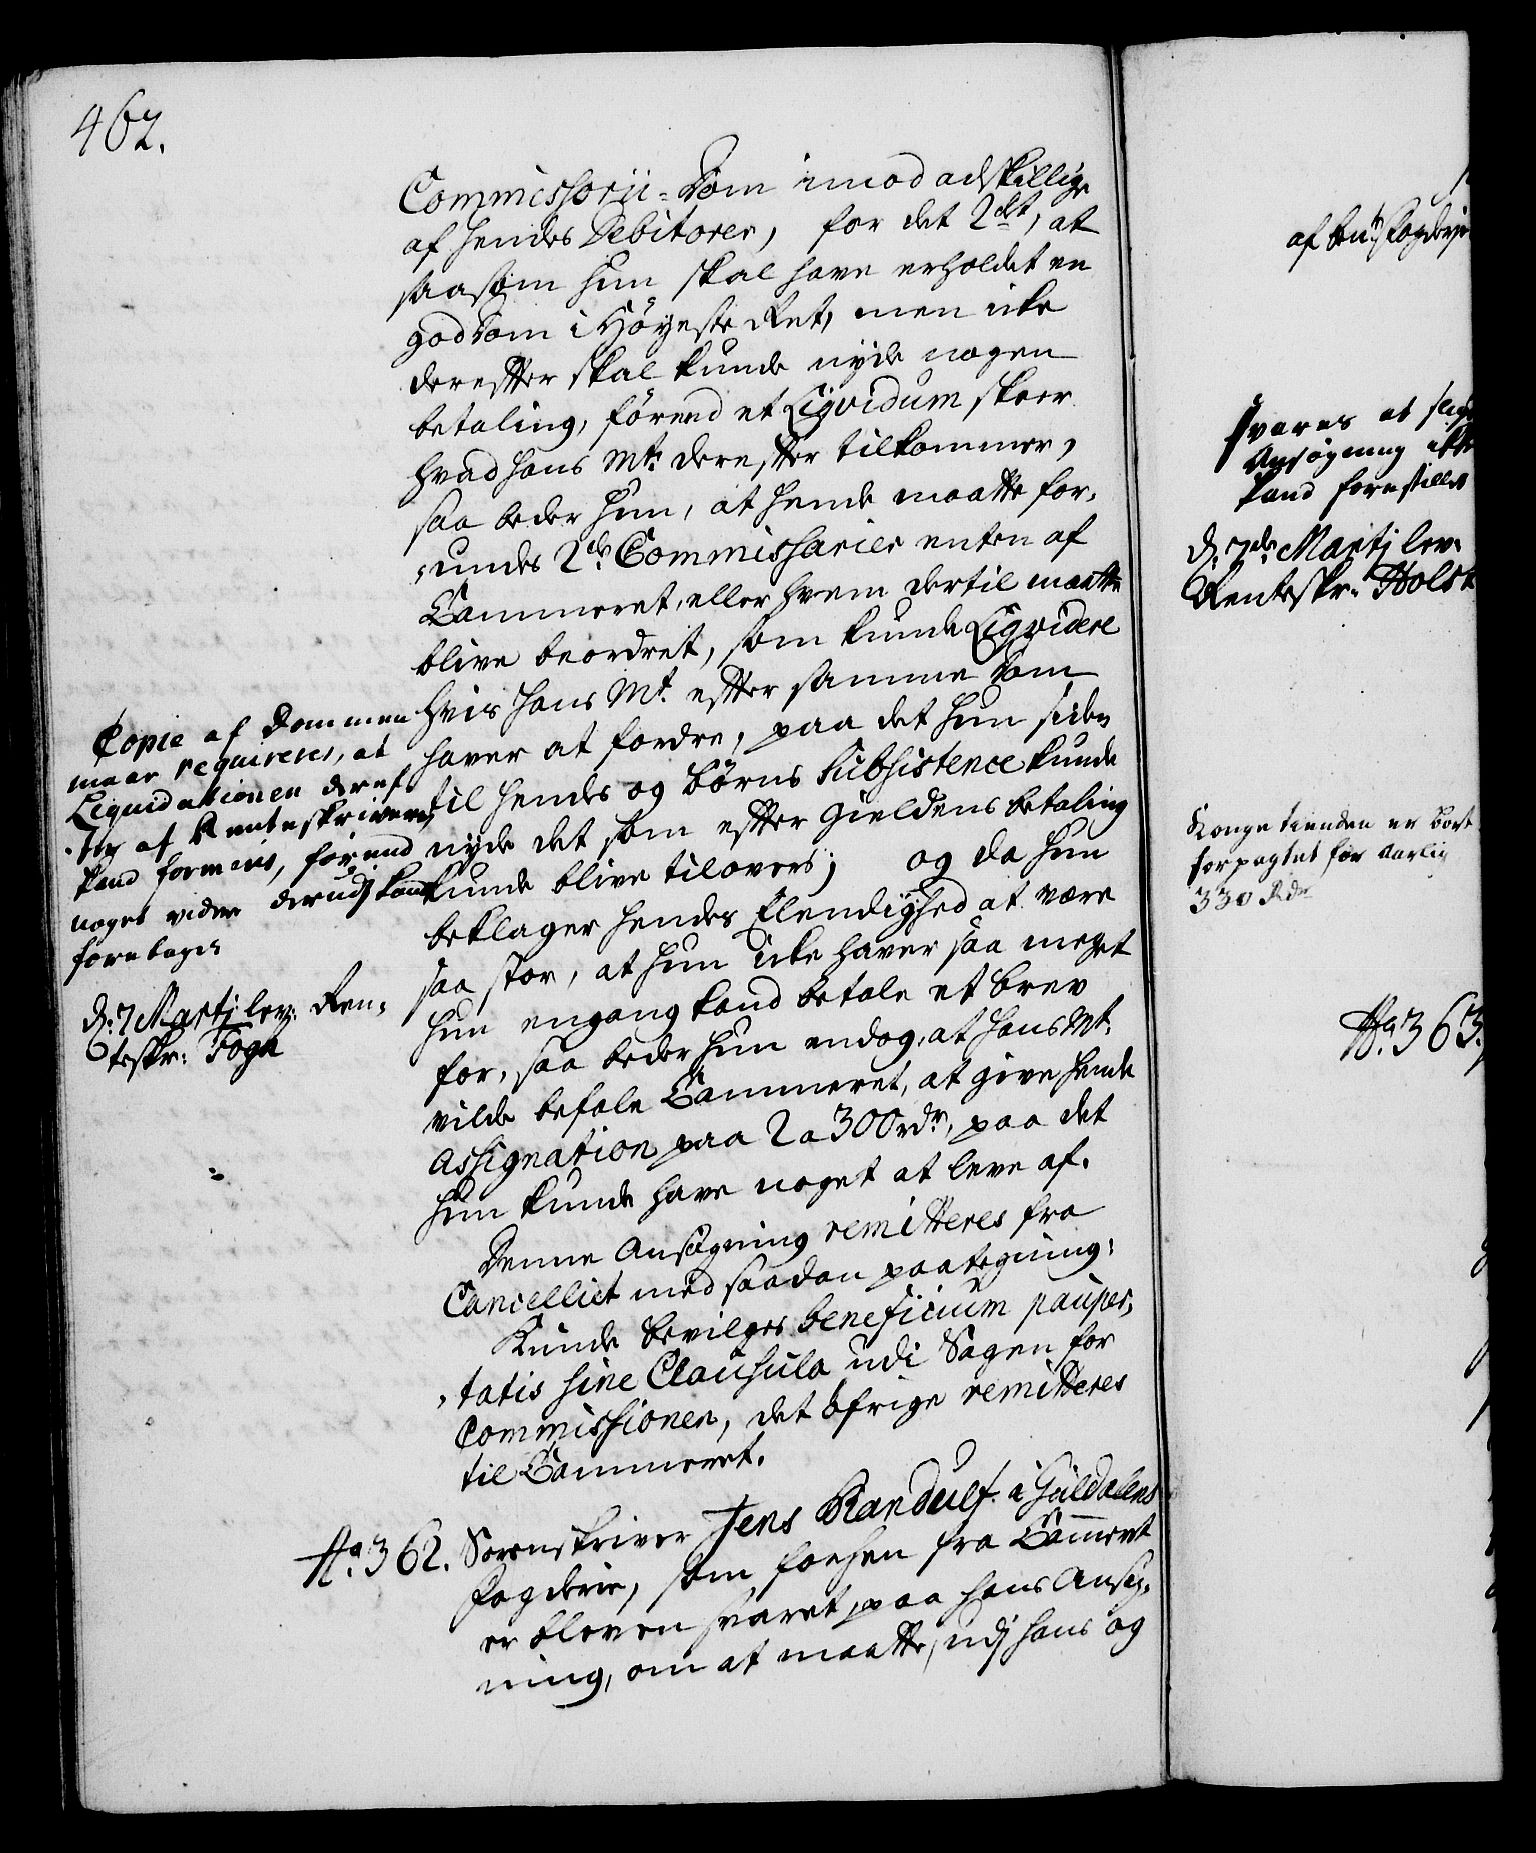 462.
Commissorii-Dom imod adskillige
af hendes Debitorer, for det 2det, at
saasom hun skal have erholdet en
god Dom i Höyeste Ret, men icke
derefter skal kunde nyde nogen
betaling, förend et Liqvidum skeer
hvad hans Mt. derefter tilkommer,
saa beder hun, at hende maatte for-
undes 2de Commissarier enten af
Cammeret, eller hvem dertil maatte
blive beordret, som kunde Liqvidere
hvis hans Mt. efter samme Dom
haver at fordre, paa det hun siden
til hendes og börns Subsistence kunde
nyde det som efter Gieldens betaling
kunde blive tilovers; og da hun
beklager hendes Elendighed at være
saa stor, at hun icke haver saa meget
hun engang kand betale et brev
for, saa beder hun endog, at hans Mt.
vilde befale Cammeret, at give hende
Assignation paa 2 a 300 rdr, paa det
hun kunde have noget at leve af.
Denne Ansögning remitteres fra
Cancelliet med saadan paategning:
Kunde bevilges beneficium pauper-
tatis sine Clausula udi Sagen for
Commissionen, det öfrige remitteres
til Cammeret.
Copie af Dommen
maae reqvireres, at
Liquidationen deref-
ter af Renteskriveren
kand formeris, förend
noget videre derudj kand
foretages
D: 7 Martj lev: Ren-
teskr: Fogh
No. 362. Sorenskriver Jens Randulf i Guldalens
Fogderie, som forhen fra Cammeret
er bleven svaret, paa hans Ansög-
ning, om at maatte, udj hans og
af bud Fogderje
Svares at slig
Ansögning ikke
kand forestilles
D: 7de Martj lev:
Renteskr: Holst
Kongetienden er bort
forpagtet for aarlig
330 Rdr
No. 363.